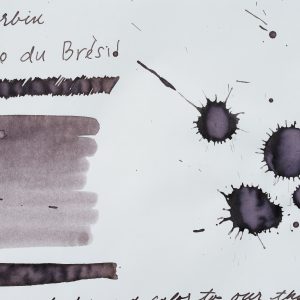 rbin
o du Brésil
color to our th